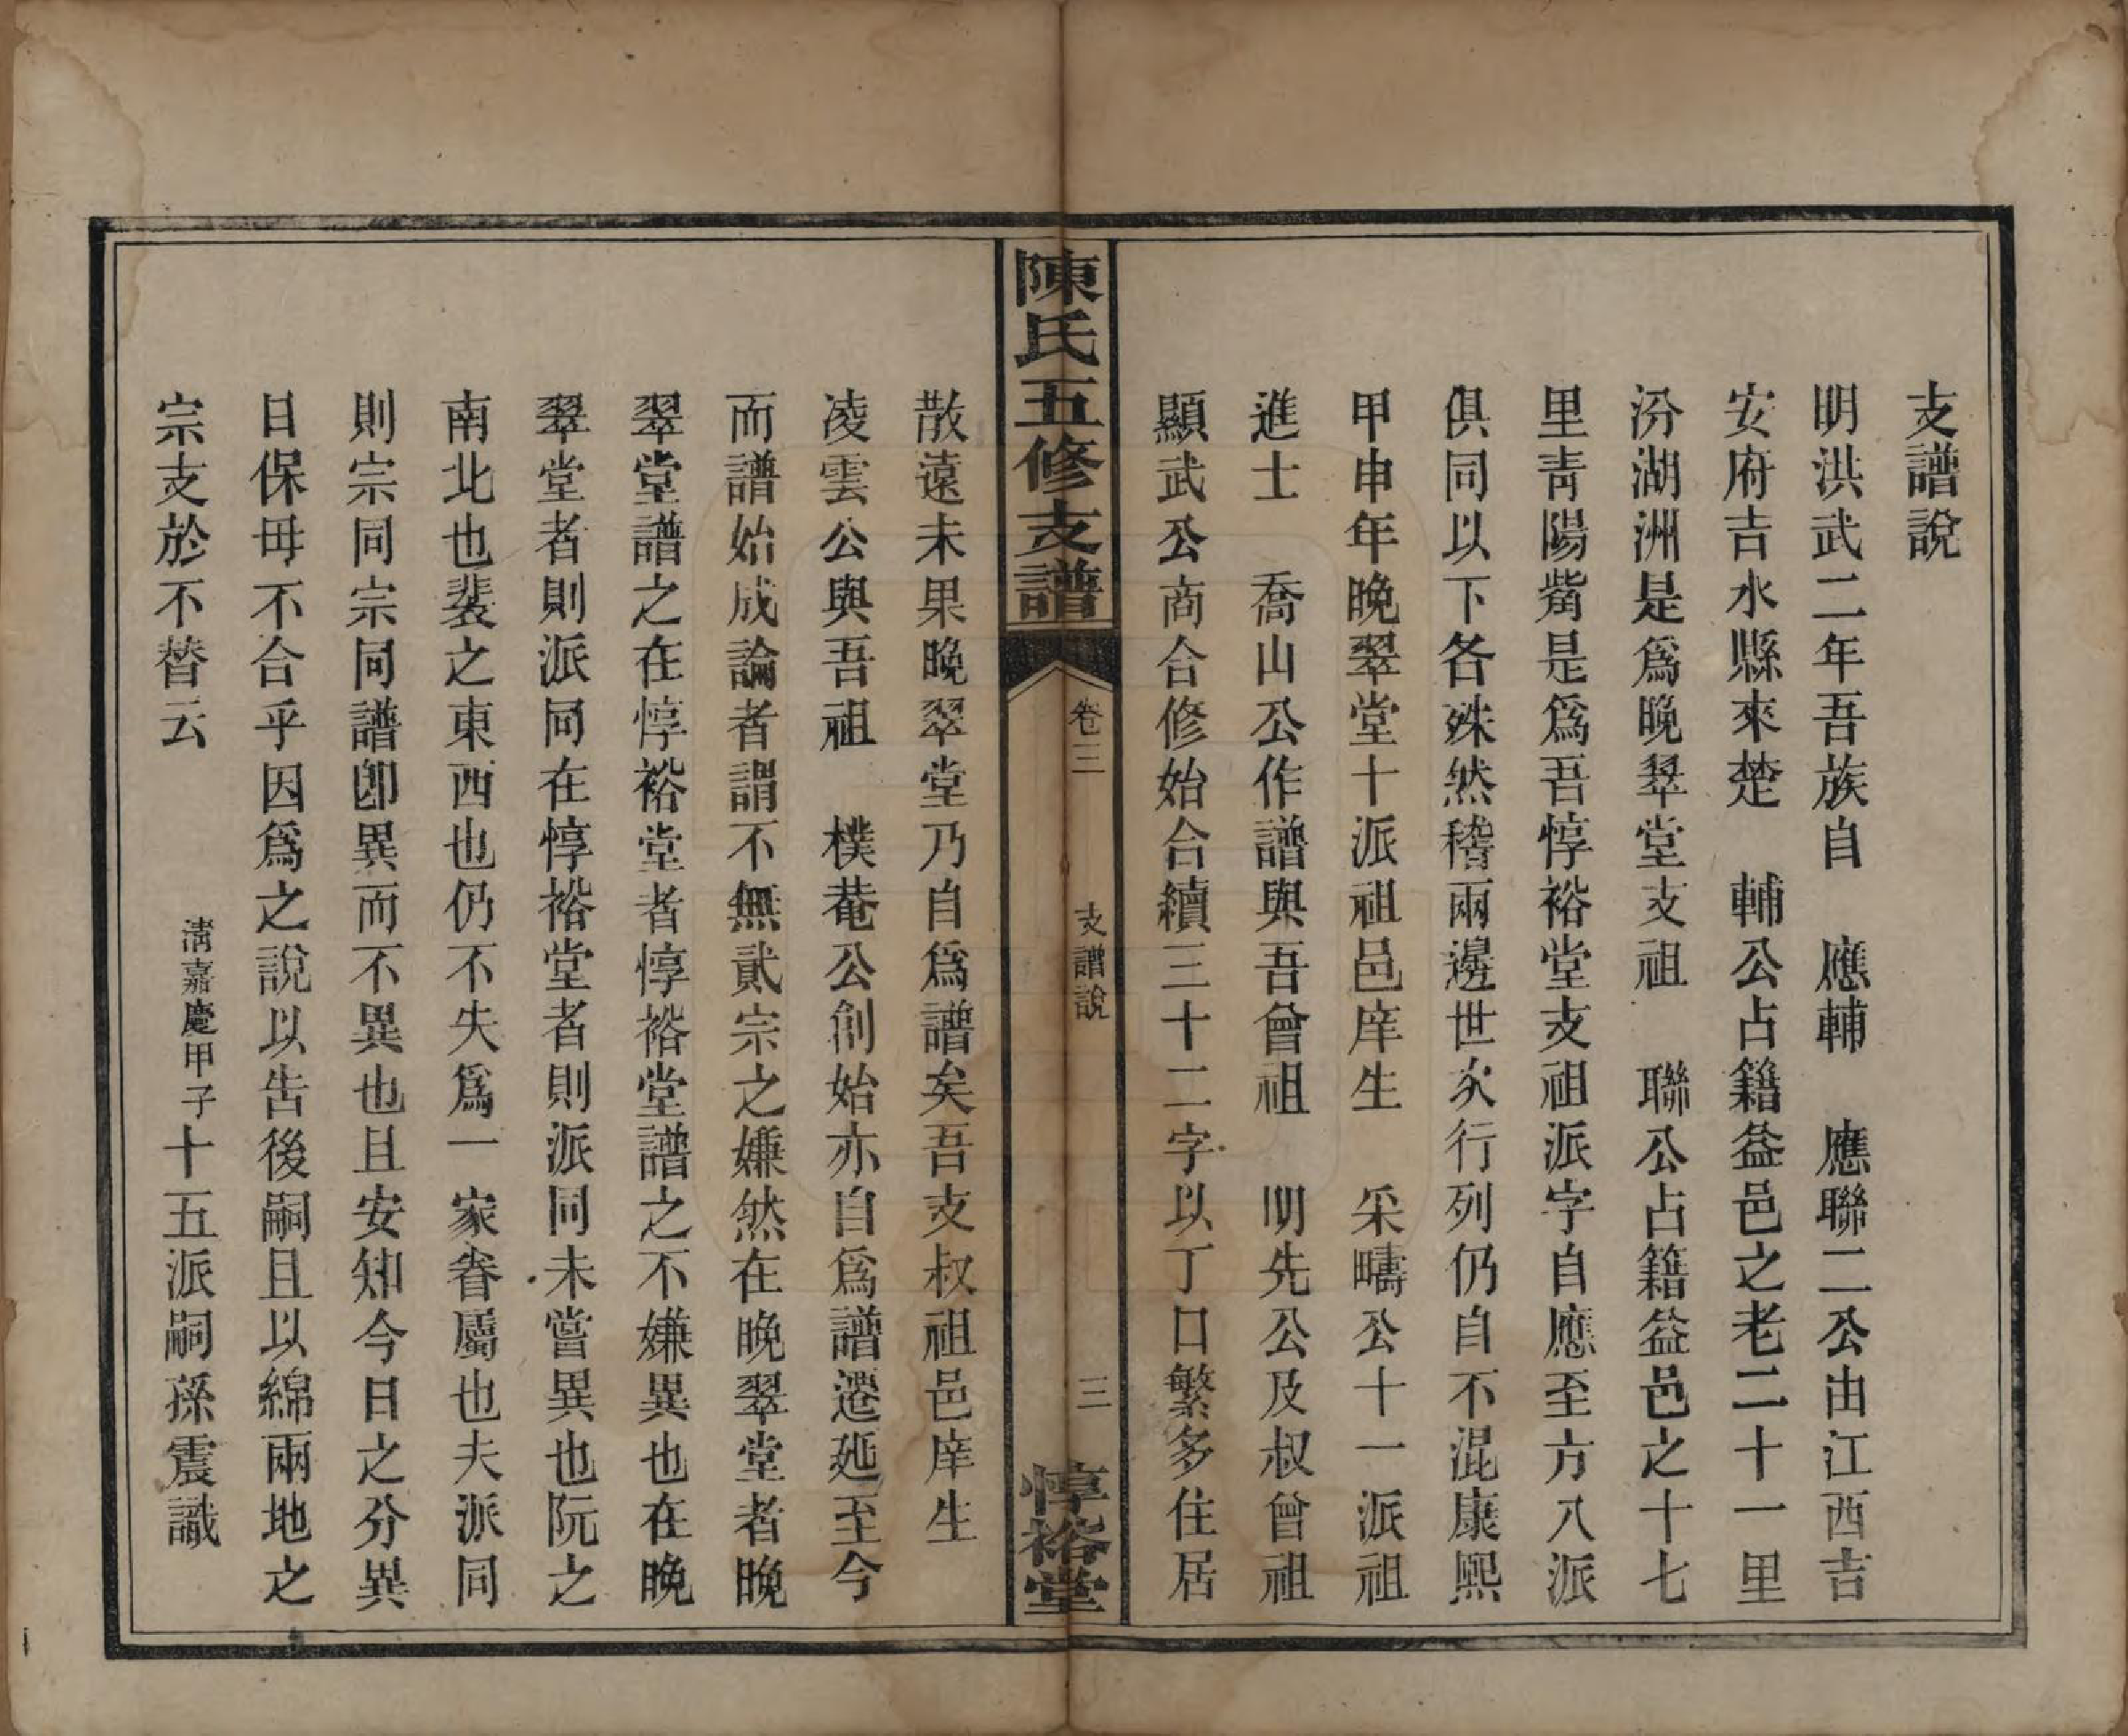 支譜說
明洪武二年吾族自　應輔　應聯二公由江西吉
安府吉水縣來楚　輔公占籍益邑之老二十一里
汾湖洲是爲晚翠堂支祖　聯公占籍益邑之十七
里靑陽觜是爲吾惇裕堂支祖派字自應至方八派
俱同以下各殊然稽兩邊世次行列仍自不混康熙
甲申年晚翠堂十派祖邑庠生　采疇公十一派祖
進士　喬山公作譜與吾曾祖　明先公及叔曾祖
顯武公商合修始合續三十二字以丁口繁多住居
陳氏五修支譜
卷三
支譜說
三
惇裕堂
散遠未果晚翠堂乃自爲譜矣吾支叔祖邑庠生
凌雲公與吾祖　樸菴公創始亦自爲譜遷延至今
而譜始成論者謂不無貳宗之嫌然在晚翠堂者晚
翠堂譜之在惇裕堂者惇裕堂譜之不嫌異也在晚
翠堂者則派同在惇裕堂者則派同未嘗異也阮之
南北也裴之東西也仍不失爲一家眷屬也夫派同
則宗同宗同譜卽異而不異也且安知今日之分異
日保毋不合乎因爲之說以告後嗣且以綿兩地之
宗支於不替云
淸嘉慶甲子十五派嗣孫震識